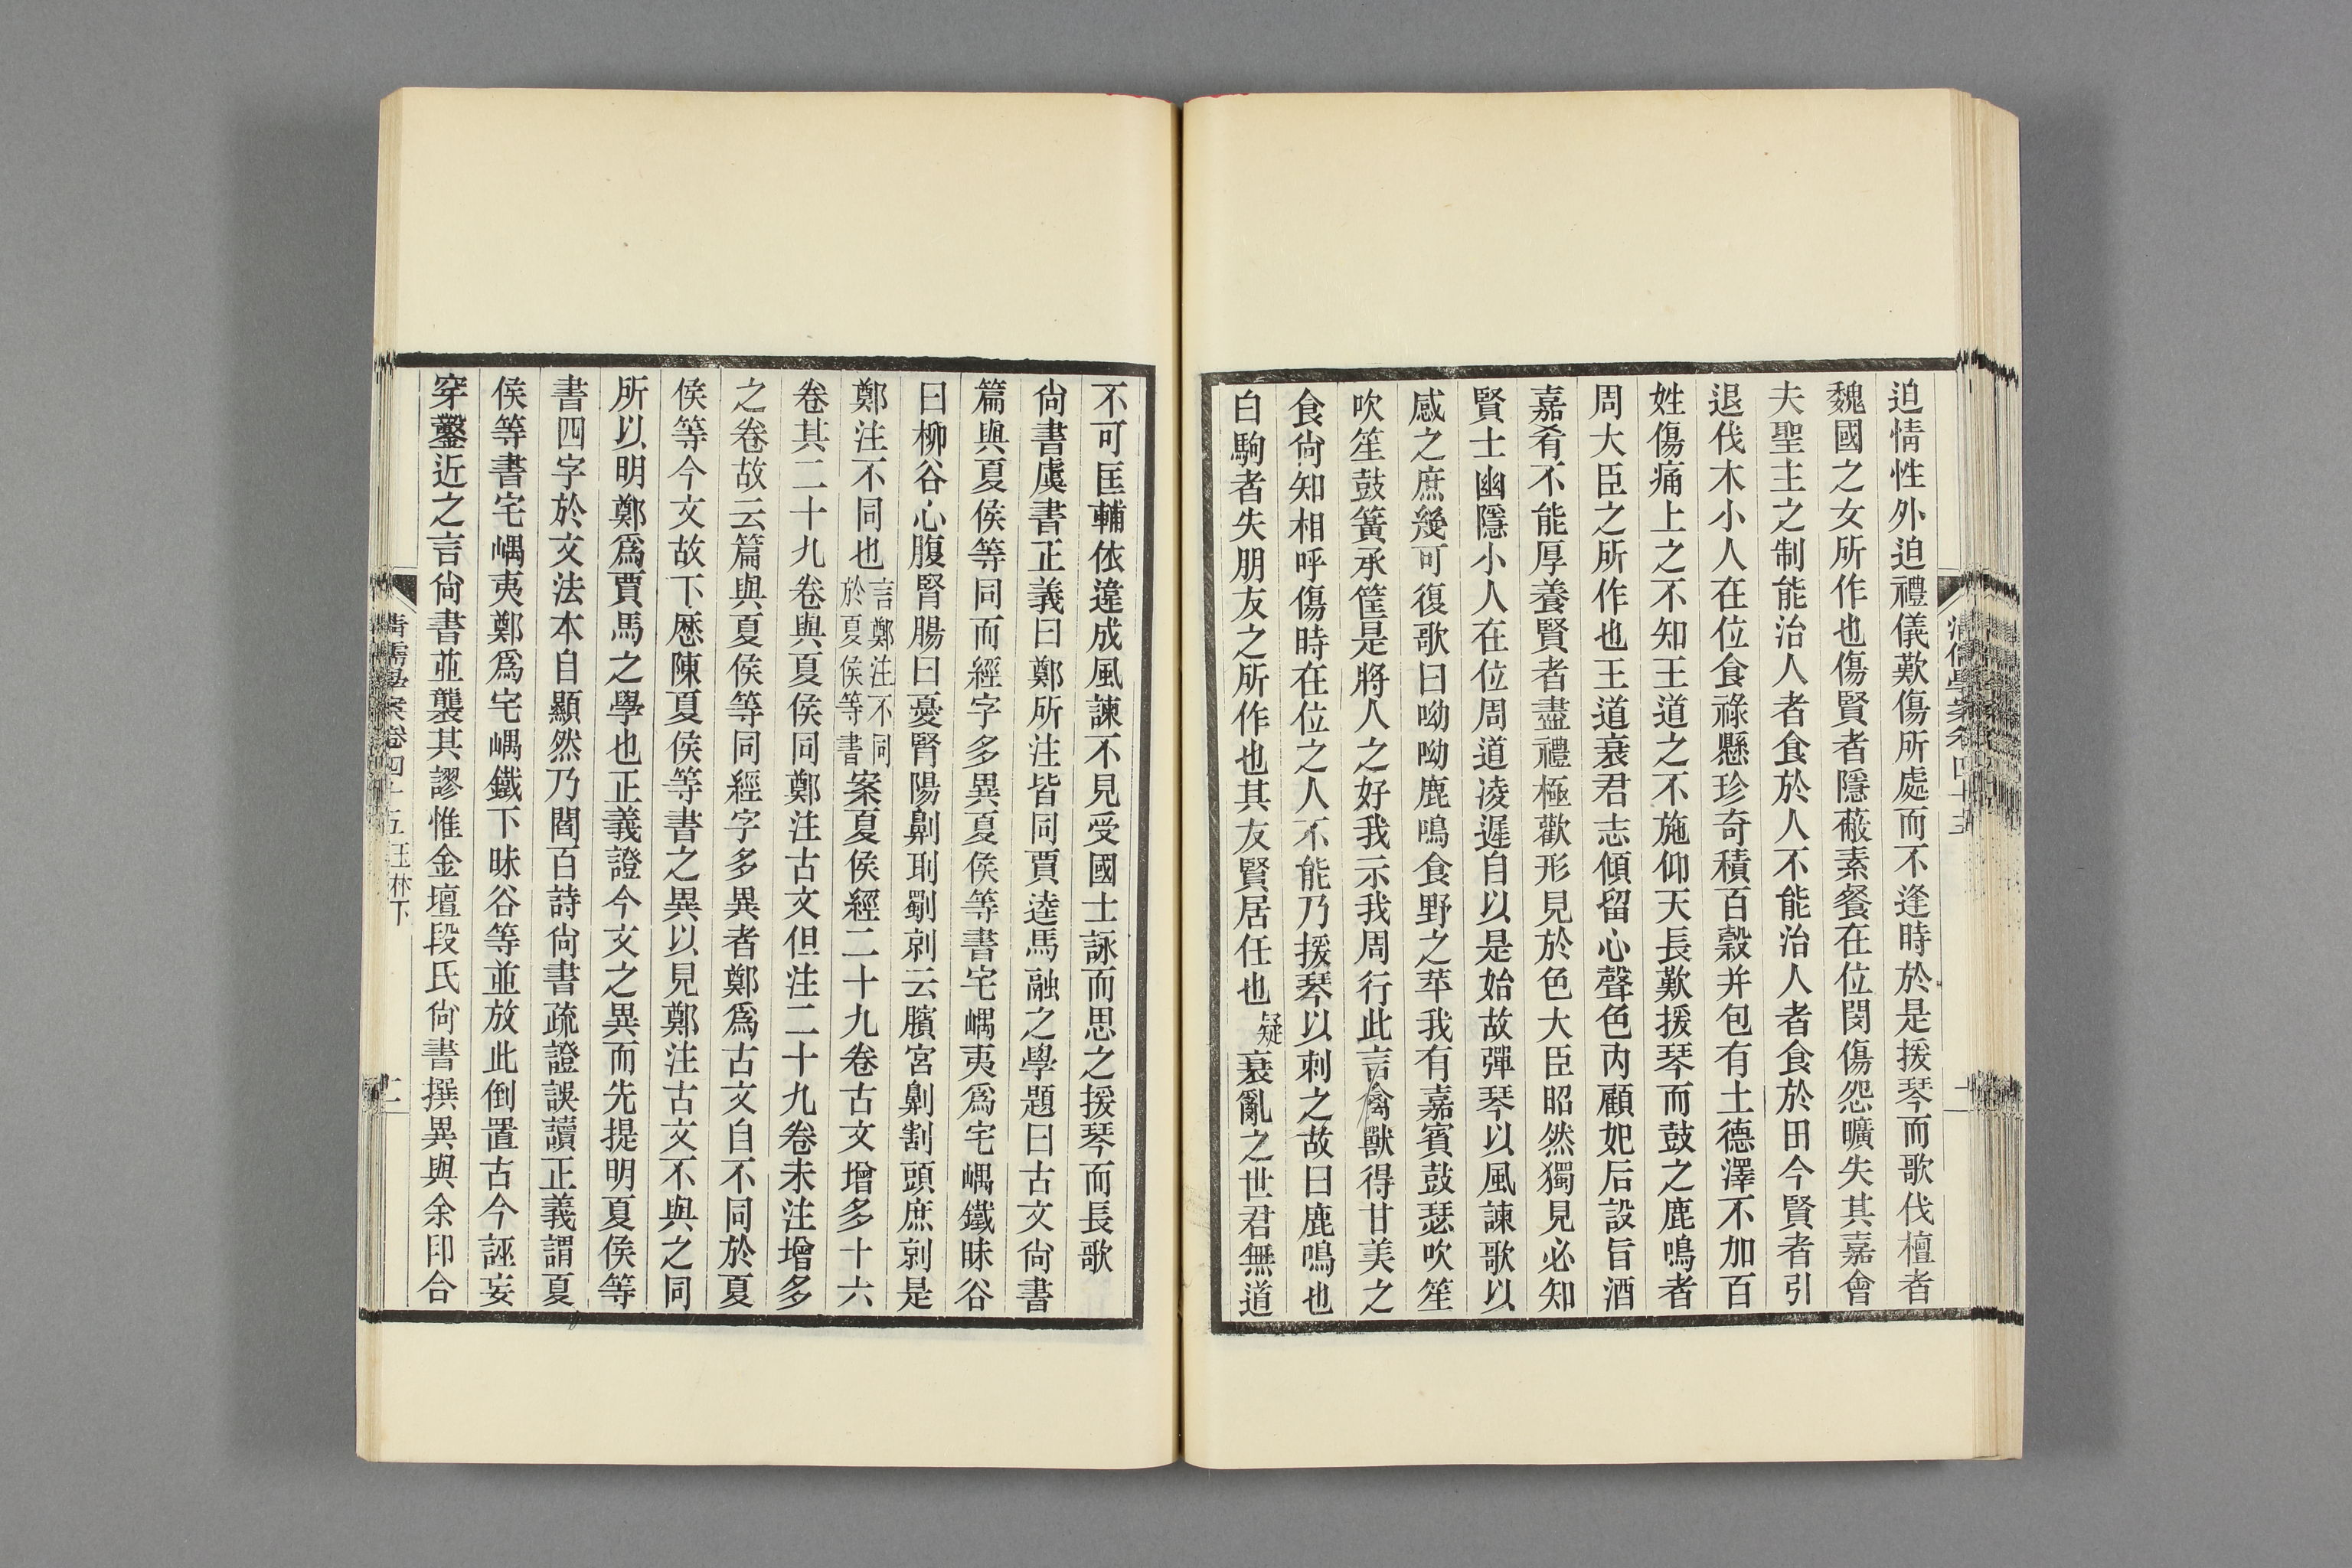 迫情性外迫禮儀歎傷所處而不逢時於是援琴而歌伐檀者
魏國之女所作也傷賢者隱蔽素餐在位閔傷怨曠失其嘉會
夫聖主之制能治人者食於人不能治人者食於田今賢者引
退伐木小人在位食祿懸珍奇積百穀并包有土德澤不加百
姓傷痛上之不知王道之不施仰天長歎援琴而鼓之鹿鳴者
周大臣之所作也王道衰君志傾留心聲色內顧妃后設旨酒
嘉肴不能厚養賢者盡禮極歡形見於色大臣昭然獨見必知
賢士幽隱小人在位周道淩遲自以是始故彈琴以風諫歌以
感之庶幾可復歌曰呦呦鹿鳴食野之苹我有嘉賓鼓瑟吹笙
吹笙鼓簧承筐是將人之好我示我周行此言禽獸得甘美之
食尙知相呼傷時在位之人不能乃援琴以刺之故曰鹿鳴也
白駒者失朋友之所作也其友賢居任也疑衰亂之世君無道
不可匡輔依違成風諫不見受國士詠而思之援琴而長歌
尙書虞書正義曰鄭所注皆同賈逵馬融之學題曰古文尙書
篇與夏侯等同而經字多異夏侯等書宅嵎夷爲宅嵎鐵昧谷
曰柳谷心腹腎腸曰憂腎陽劓刵劅剠云臏宮劓割頭庶剠是
鄭注不同也言鄭注不同於夏侯等書案夏侯經二十九卷古文增多十六
卷其二十九卷與夏侯同鄭注古文但注二十九卷未注增多
之卷故云篇與夏侯等同經字多異者鄭爲古文自不同於夏
侯等今文故下歷陳夏侯等書之異以見鄭注古文不與之同
所以明鄭爲賈馬之學也正義證今文之異而先提明夏侯等
書四字於文法本自顯然乃閻百詩尙書疏證誤讀正義謂夏
侯等書宅嵎夷鄭爲宅嵎鐵下昧谷等並放此倒置古今誣妄
穿鑿近之言尙書並襲其謬惟金壇段氏尙書撰異與余印合